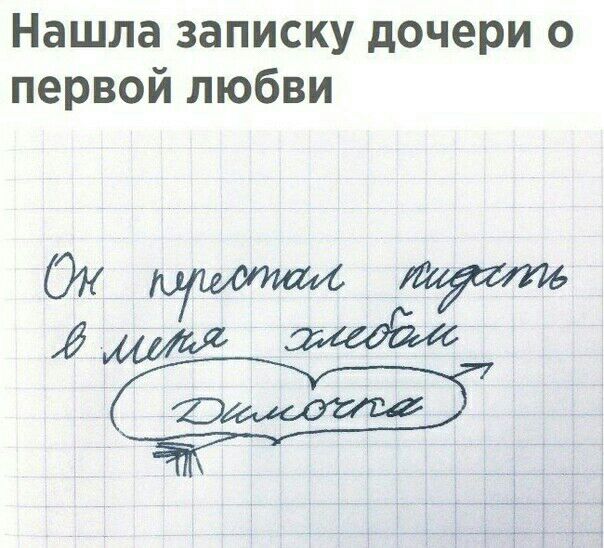 Нашла записку дочери о
первой любви
Он перестал кидать
в меня хлебом
Димочка